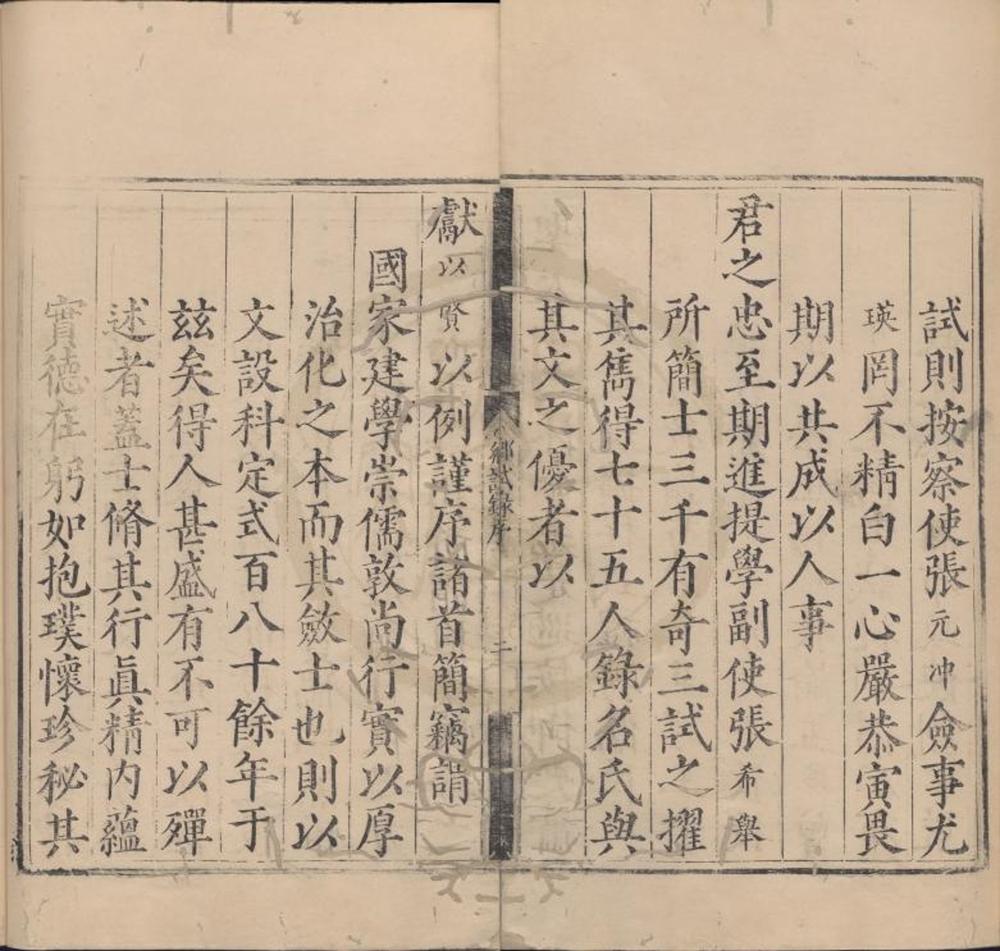 試則按察使張元冲僉事尤
瑛罔不精白一心嚴恭寅畏
期以共成以人事
君之忠至期進提學副使張希舉
所簡士三千有奇三試之擢
其雋得七十五人錄名氏與
其文之優者以
鄉試錄序
二
獻以賢以例謹序諸首簡竊誚
國家建學崇儒敦尚行實以厚
治化之本而其斂士也則以
文設科定式百八十餘年于
茲矣得人甚盛有不可以殫
述者蓋士脩其行眞精內蘊
實德在躬如抱璞懷珍秘其